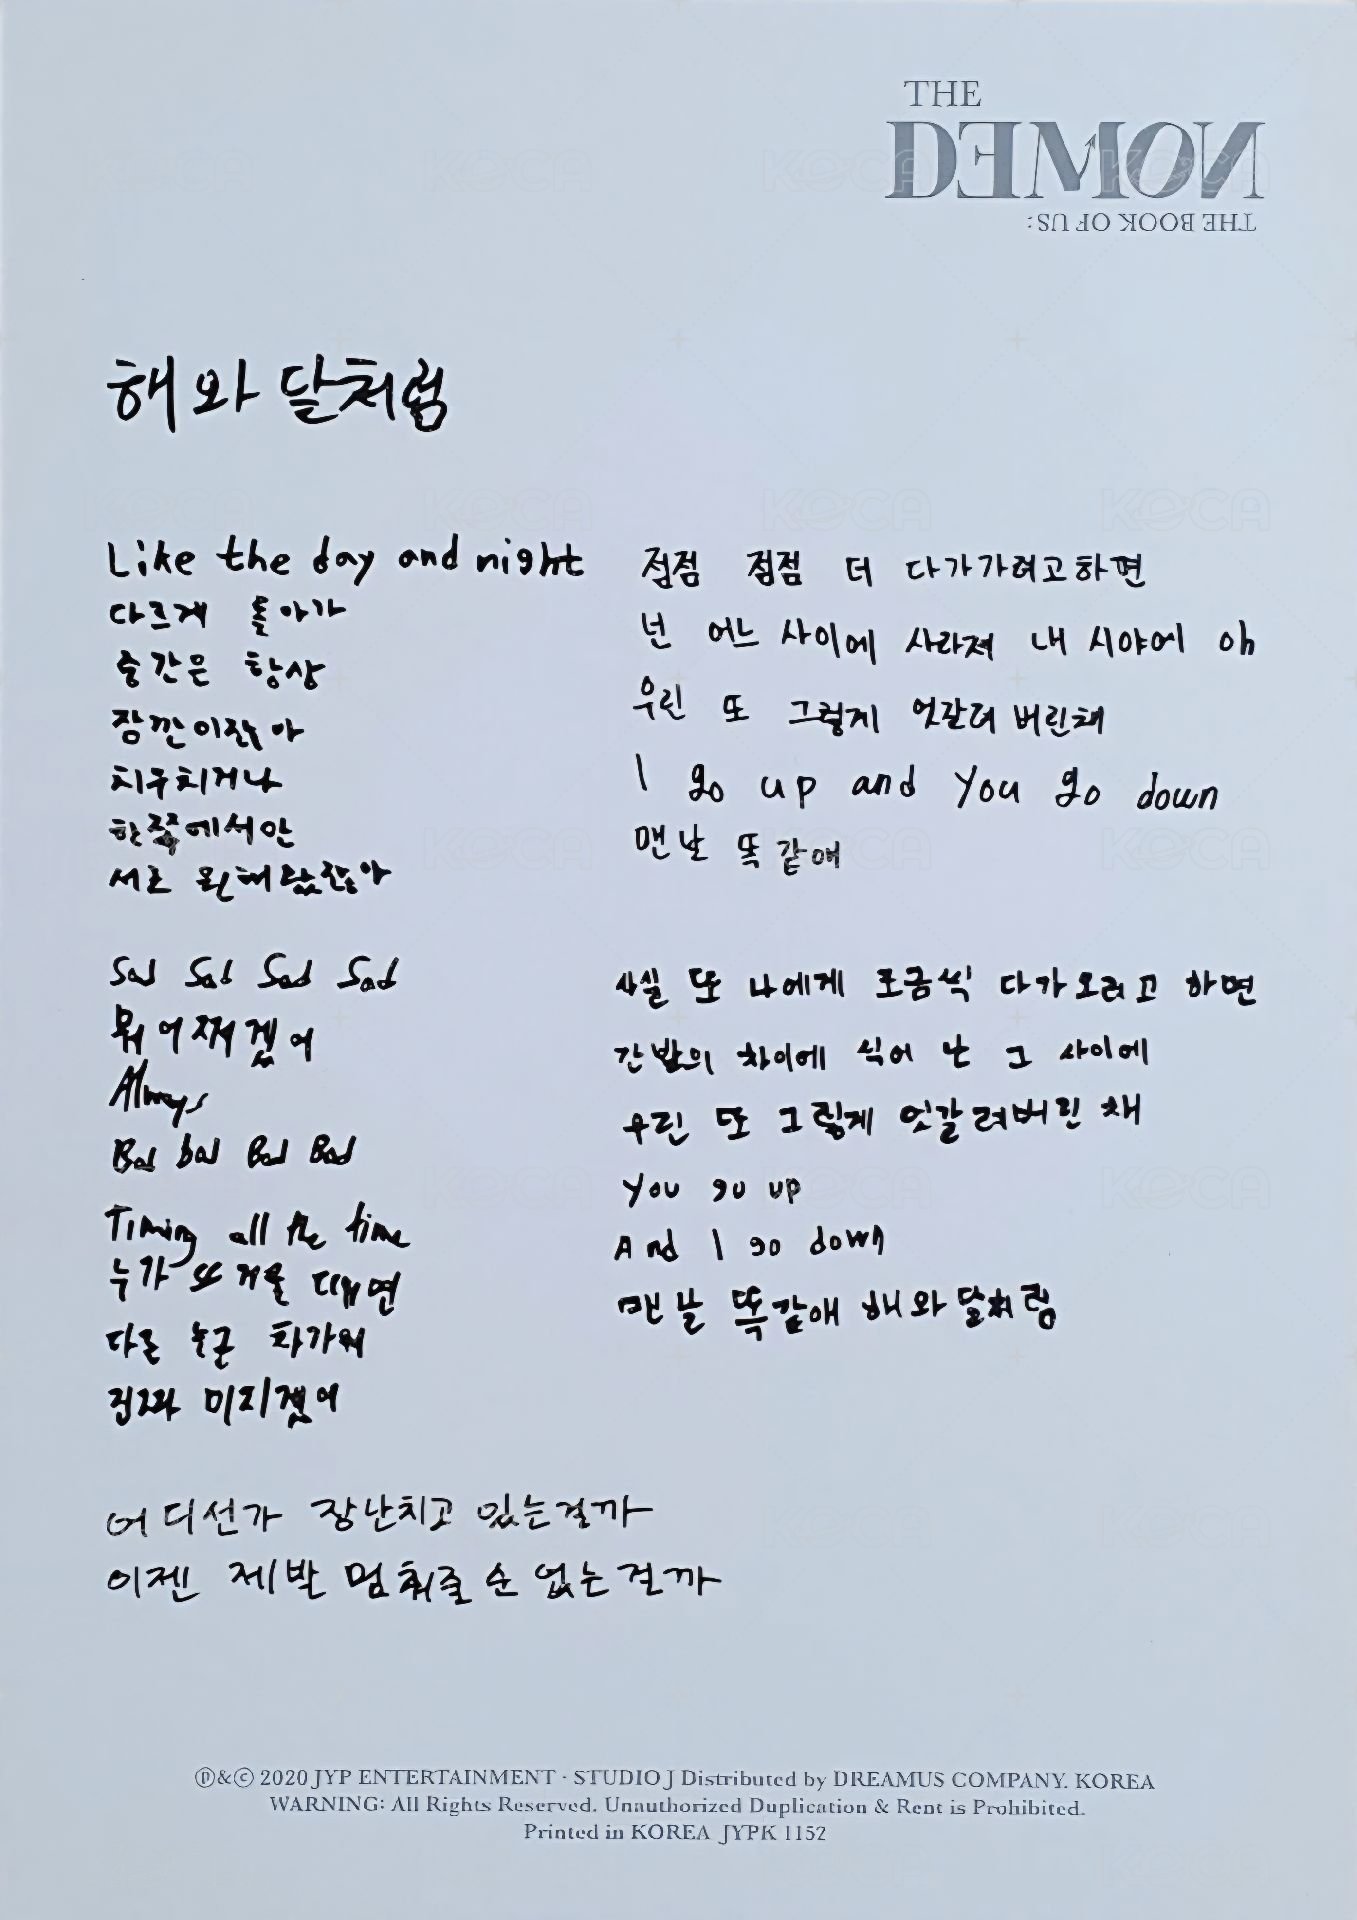 THE
DEMON
THE BOOK OF US:
해와 달처럼
Like the day and night
다르게 돌아가
중간은 항상
잠깐이잖아
치우치거나
한쪽에서만
서로 원해왔잖아
Sad Sad Sad Sad
뭐 어쩌겠어
Always
Bad bad Bad Bad
Timing all the time
누가 뜨거울 때면
다른 누군 차가워
진짜 미치겠어
어디선가 장난치고 있는걸까
이젠 제발 멈춰줄 순 없는걸까
점점 점점 더 다가가려고하면
넌 어느 사이에 사라져 내 시야에 oh
우린 또 그렇게 엇갈려 버린채
I go up and you go down
맨날 똑같애
사실 또 나에게 조금씩 다가오려고 하면
간발의 차이에 식어 난 그 사이에
우린 또 그렇게 엇갈려버린 채
you go up
And I go down
맨날 똑같애 해와 달처럼
Ⓟ&ⓒ 2020 JYP ENTERTAINMENT · STUDIO J Distributed by DREAMUS COMPANY. KOREA
WARNING: All Rights Reserved. Unauthorized Duplication & Rent is Prohibited.
Printed in KOREA JYPK 1152
KOCA